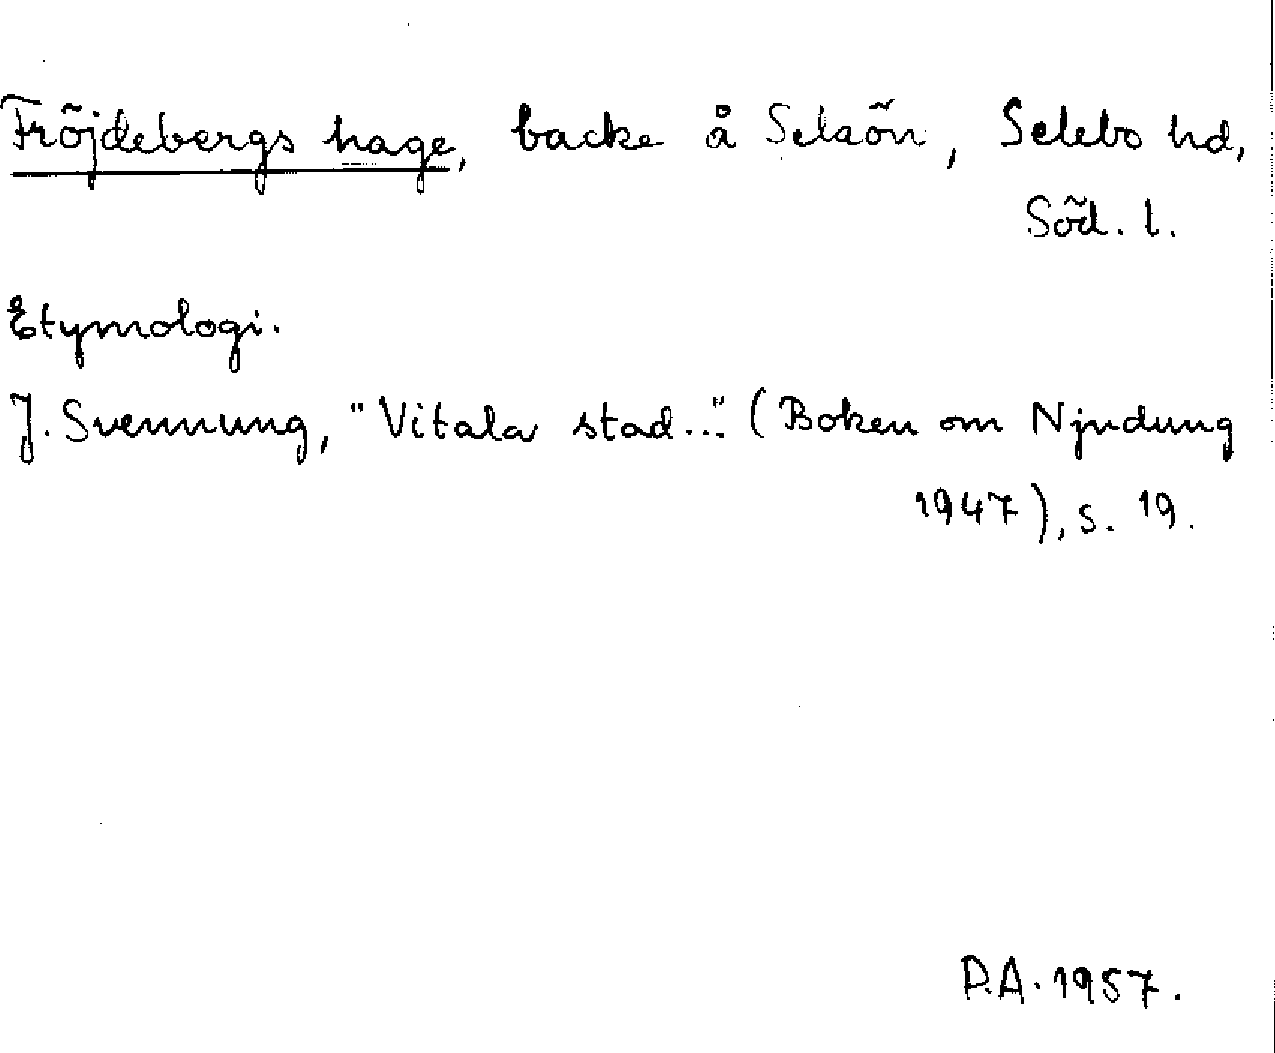 Fröjdebergs hage, backe å Selaön, Selebo hd,
Söd. l.
Etymologi.
J. Svennung, "Vitala stad..." (Boken om Njudung
1947), s. 19.
P.A. 1957.